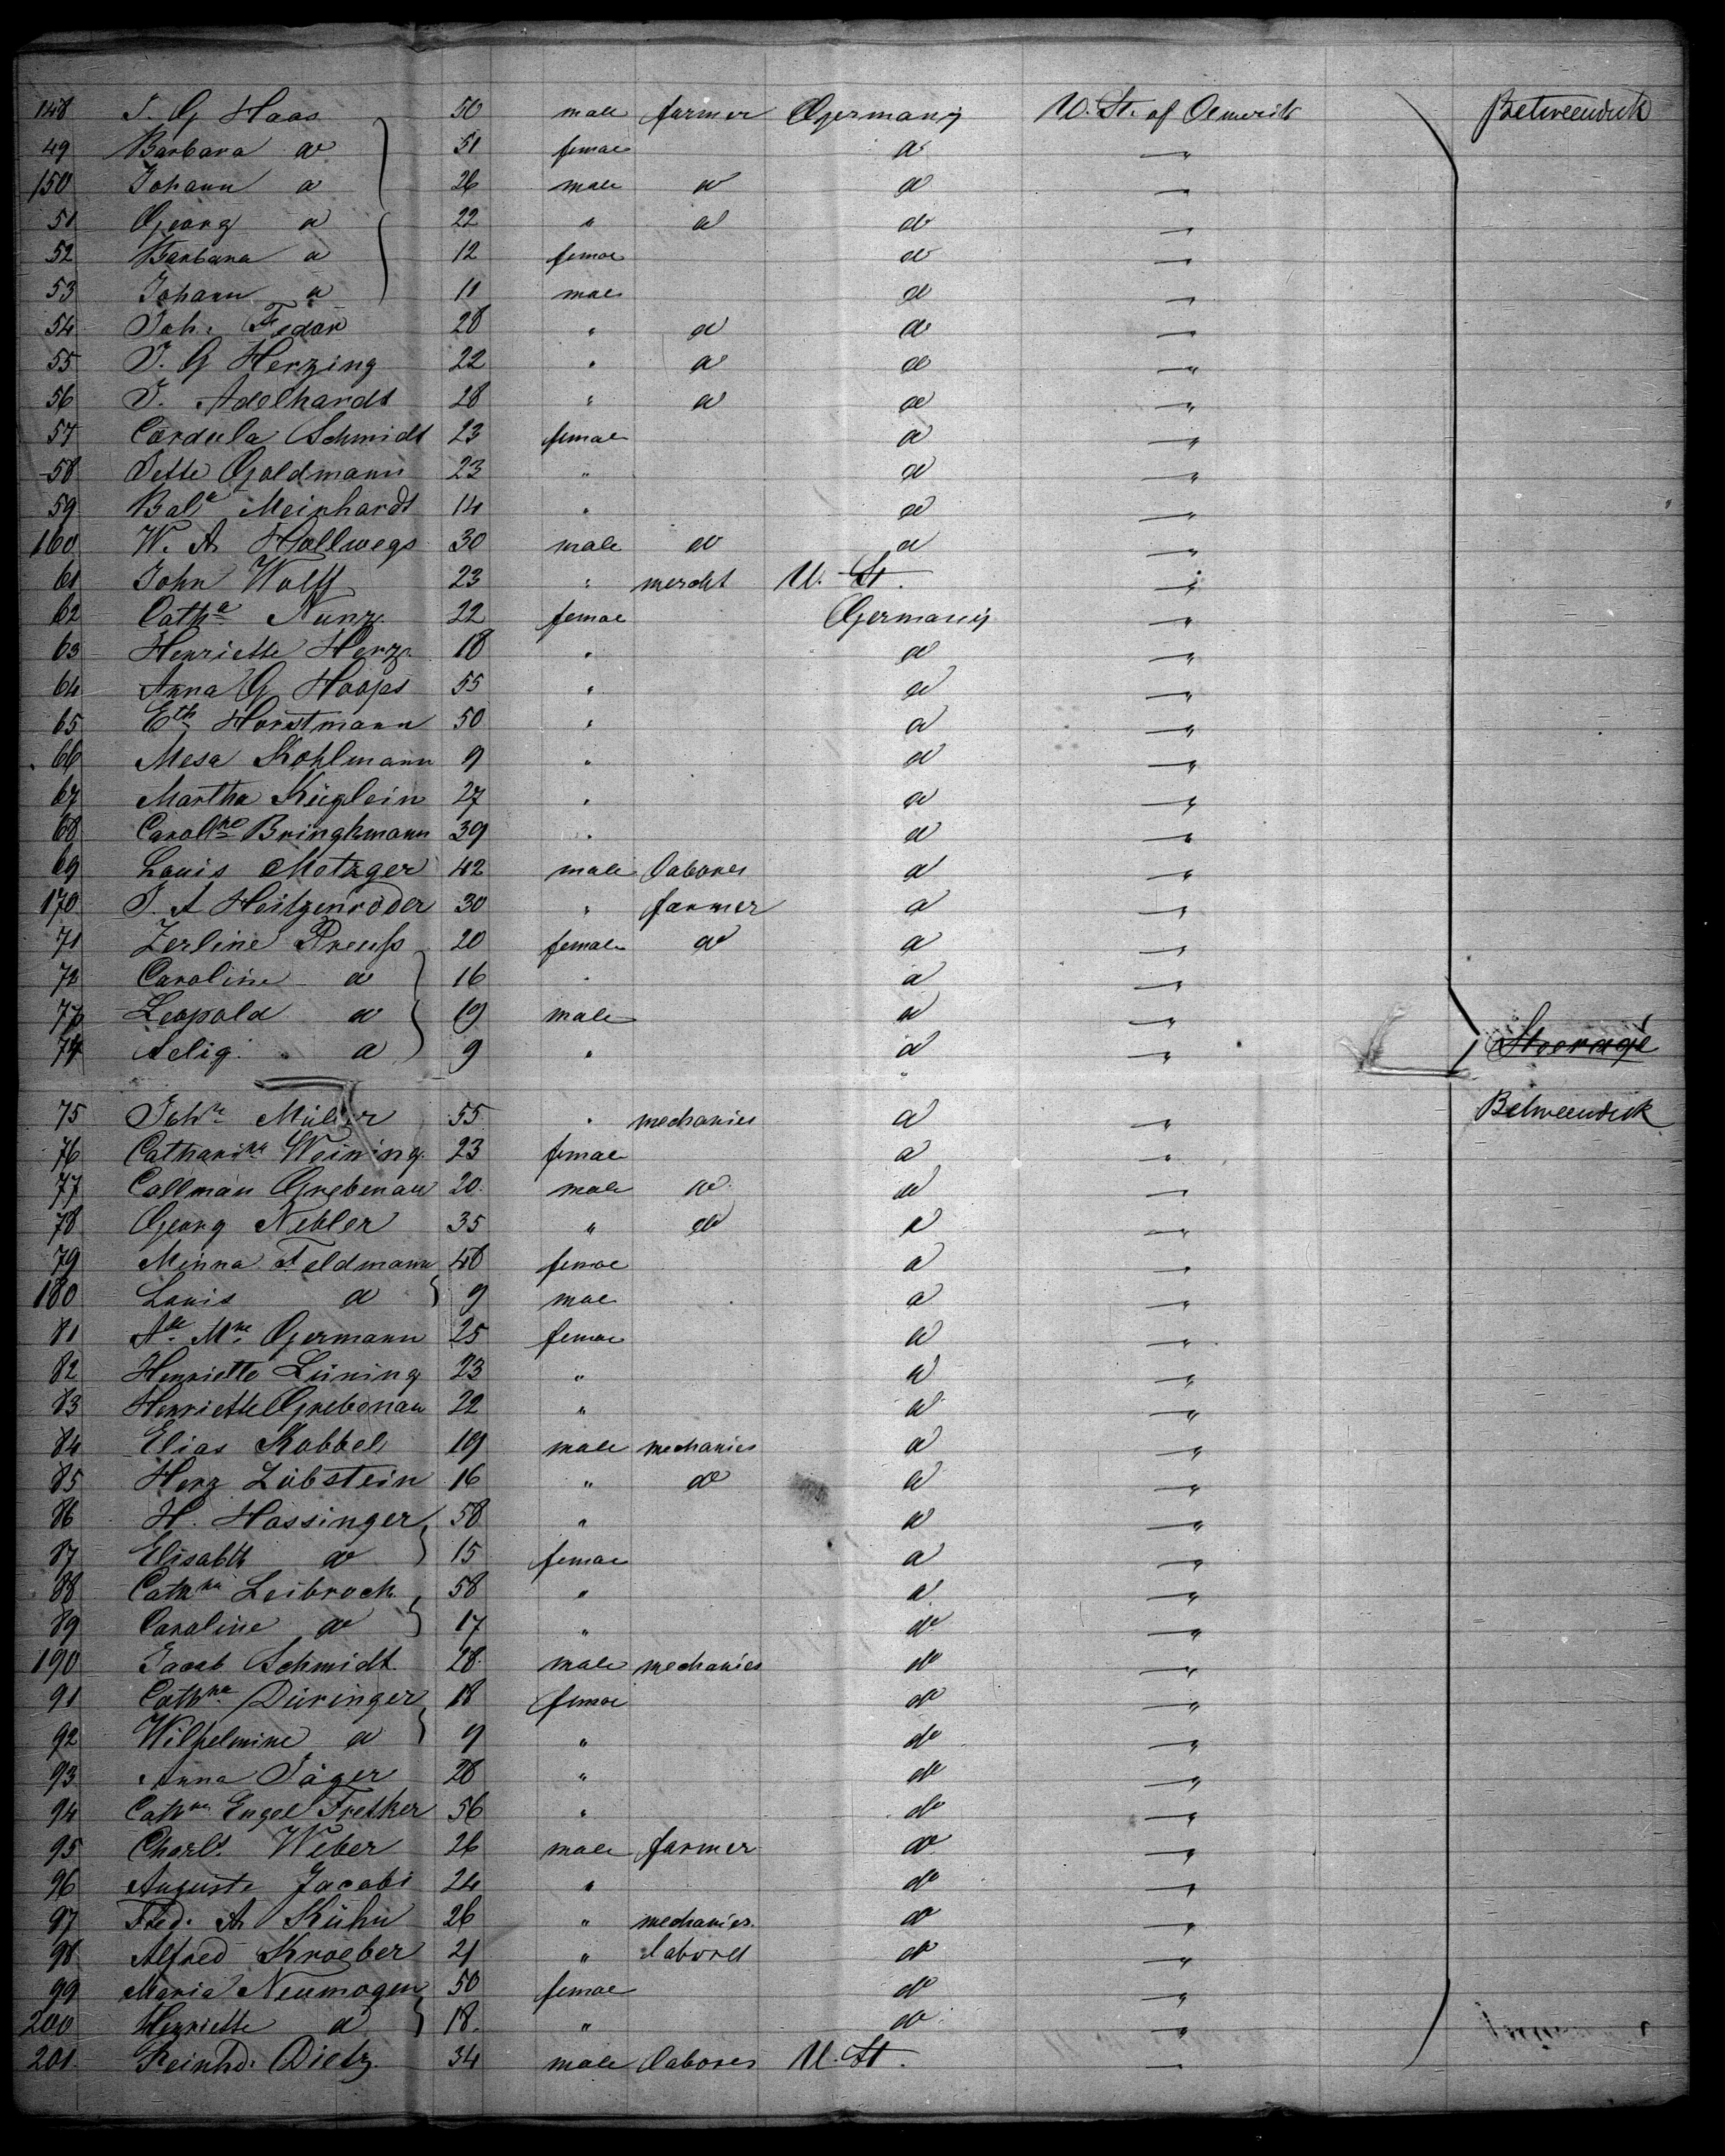 148 J. G Haas 50 male farmer Germany U. St. of America Betweendeck
49 Barbara do 51 female do "
150 Johann do 26 male do do "
51 Georg do 22 " do do "
52 Barbara do 12 female do "
53 Johann do 11 male do "
54 Joh. Fedor 28 " do do "
55 J. G Herzing 22 " do do "
56 J. Adelhardt 28 " do do "
57 Cordula Schmidt 23 female do "
58 Jette Goldmann 23 " do "
59 Bab^a Meinhardt 14 " do "
160 W. A Hollwegs 30 male do do "
61 John Wolff 23 " mercht U. St. "
62 Cath^a Nunz 22 female Germany "
63 Henriette Herz 18 " do "
64 Anna G Hoops 55 " do "
65 Eth Horstmann 50 " do "
66 Mesa Kohlmann 9 " do "
67 Martha Küglein 27 " do "
68 Carol^ne Bringkmann 39 " do "
69 Louis Metzger 42 male labores do "
170 J. A Heitzenröder 30 " farmer do "
71 Zerline Preuß 20 female do do "
72 Caroline do 16 " do "
73 Leopold do 19 male do "
74 Selig do 9 " do " Steerage
75 Joh^n Müller 55 " mechanics do " Betweendeck
76 Cathari^na Weining 23 female do "
77 Callman Grebenau 20 male do do "
78 Georg Nebler 35 " do do "
79 Minna Feldmann 48 female do "
180 Louis do 9 male do "
81 M^ne Germann 25 female do "
82 Henriette Lüning 23 " do "
83 Henriette Grebenau 22 " do "
84 Elias Kobbel 19 male mechanics do "
85 Herz Löbstein 16 " do do "
86 H. Hassinger 58 " do "
87 Elisabth do 15 female do "
88 Cath^na Leibrock 58 " do "
89 Caroline do 17 " do "
190 Jacob Schmidt 28 male mechanics do "
91 Cath^na Düringer 18 female do "
92 Wilhelmine do 9 " do "
93 Anna Jäger 28 " do "
94 Cath^na Engel Fretker 56 " do "
95 Charls Weber 26 male farmer do "
96 Auguste Jacobi 24 " do "
97 Fred. A Kühn 26 " mechanics do "
98 Alfred Kroeber 21 " labores do "
99 Maria Neumogen 50 female do "
200 Henriette do 18 " do "
201 Reinhd. Dietz 34 male labores U. St. "